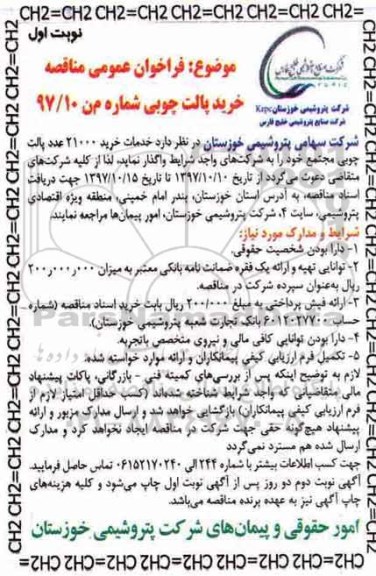 CH2=CH2 CH2=CH2 CH2=CH2 CH2=CH2 CH2=CH2 CH2=
نوبت اول
موضوع: فراخوان عمومی مناقصه
خرید پالت چوبی شماره م‌ن ۹۷/۱۰
شرکت پتروشیمی خوزستان Kzpc
شرکت صنایع پتروشیمی خلیج فارس
شرکت سهامی پتروشیمی خوزستان در نظر دارد خدمات خرید ۲۱۰۰۰ عدد پالت
چوبی مجتمع خود را به شرکت‌های واجد شرایط واگذار نماید، لذا از کلیه شرکت‌های
متقاضی دعوت می‌گردد از تاریخ ۱۳۹۷/۱۰/۱۰ تا تاریخ ۱۳۹۷/۱۰/۱۵ جهت دریافت
اسناد مناقصه، به آدرس استان خوزستان، بندر امام خمینی، منطقه ویژه اقتصادی
پتروشیمی، سایت ۴، شرکت پتروشیمی خوزستان، امور پیمان‌ها مراجعه نمایند.
شرایط و مدارک مورد نیاز:
۱- دارا بودن شخصیت حقوقی.
۲- توانایی تهیه و ارائه یک فقره ضمانت نامه بانکی معتبر به میزان ۲۰۰ر۰۰۰ر۰۰۰
ریال به‌عنوان سپرده شرکت در مناقصه.
۳- ارائه فیش پرداختی به مبلغ ۲۰۰/۰۰۰ ریال بابت خرید اسناد مناقصه (شماره
حساب ۶۰۱۲۰۳۷۷۰۰ بانک تجارت شعبه پتروشیمی خوزستان).
۴- دارا بودن توانایی کافی مالی و نیروی متخصص باتجربه.
۵- تکمیل فرم ارزیابی کیفی پیمانکاران و ارائه موارد خواسته شده.
لازم به توضیح اینکه پس از بررسی‌های کمیته فنی - بازرگانی، پاکات پیشنهاد
مالی متقاضیانی که واجد شرایط شناخته شده‌اند (کسب حداقل امتیاز لازم از
فرم ارزیابی کیفی پیمانکاران) بازگشایی خواهد شد و ارسال مدارک مزبور و ارائه
پیشنهاد هیچ‌گونه حقی جهت شرکت در مناقصه ایجاد نخواهد کرد و مدارک
ارسال شده هم مسترد نمی‌گردد
جهت کسب اطلاعات بیشتر با شماره ۲۴۴ الی ۰۶۱۵۲۱۷۰۲۴۰ تماس حاصل فرمایید.
آگهی نوبت دوم دو روز پس از آگهی نوبت اول چاپ می‌شود و کلیه هزینه‌های
چاپ آگهی نیز به عهده برنده مناقصه می‌باشد.
امور حقوقی و پیمان‌های شرکت پتروشیمی خوزستان
=CH2 CH2=CH2 CH2=CH2 CH2=CH2 CH2=CH2 CH2=CH2